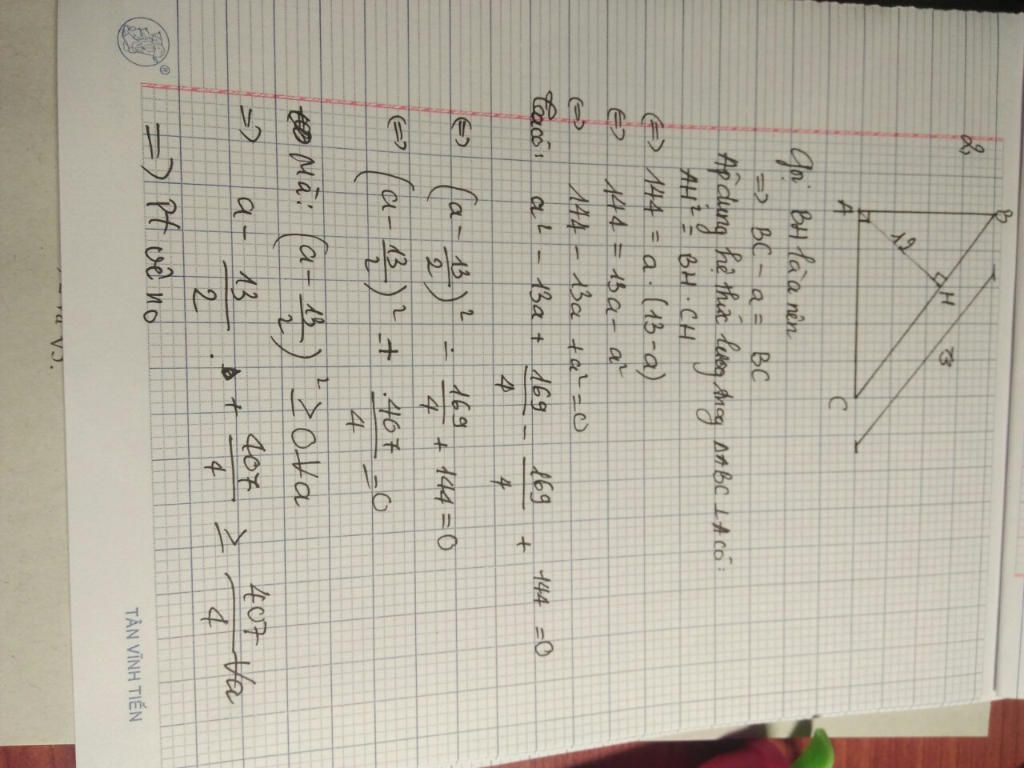 2,
B
H
12
13
A
C
Gọi BH là a nên
=> BC - a = BC
Áp dụng hệ thức lượng trong ΔABC ⊥ A có:
AH² = BH . CH
(=) 144 = a . (13 - a)
(=) 144 = 13a - a²
(=) 144 - 13a + a² = 0
Ta có: a² - 13a + 169/4 - 169/4 + 144 = 0
(=) (a - 13/2)² - 169/4 + 144 = 0
(=) (a - 13/2)² + 407/4 = 0
Mà: (a - 13/2)² ≥ 0 ∀a
=> a - 13/2 + 407/4 ≥ 407/4 ∀a
=> pt vô no
TÂN VĨNH TIẾN
®